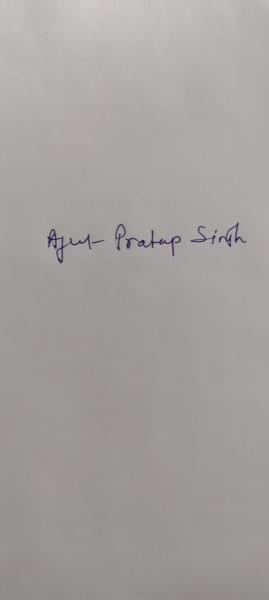 Ajit Pratap Singh